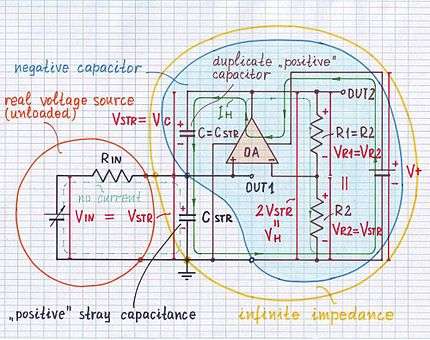 negative capacitor
duplicate „positive"
capacitor
real voltage source
(unloaded)
VSTR = VC
IH
OUT2
C = CSTR
R1=R2
VR1=VR2
OA
RIN
V+
no current
OUT1
VIN = VSTR
CSTR
2VSTR
=
VH
=
R2
VR2=VSTR
„positive" stray capacitance
infinite impedance
+
-